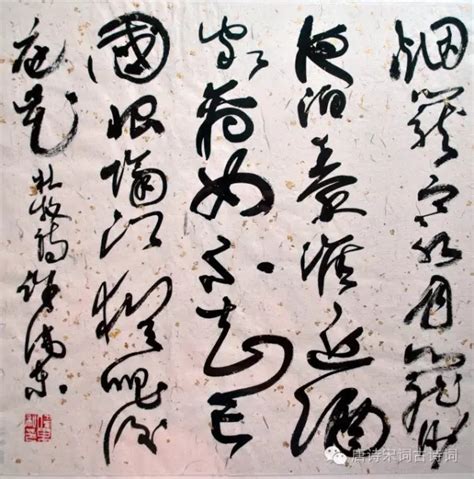 烟籠寒水月籠沙
夜泊秦淮近酒
家商女不知亡
國恨隔江猶唱後
庭花 杜牧詩
唐诗宋词古诗词